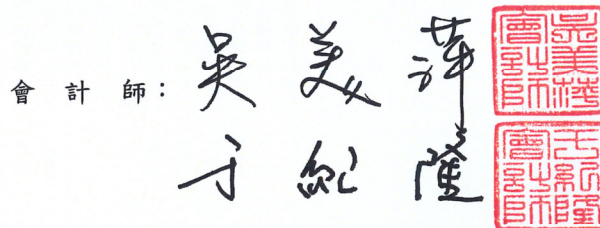 會計師：吳美萍
于紀隆
吳美萍會計師
于紀隆會計師